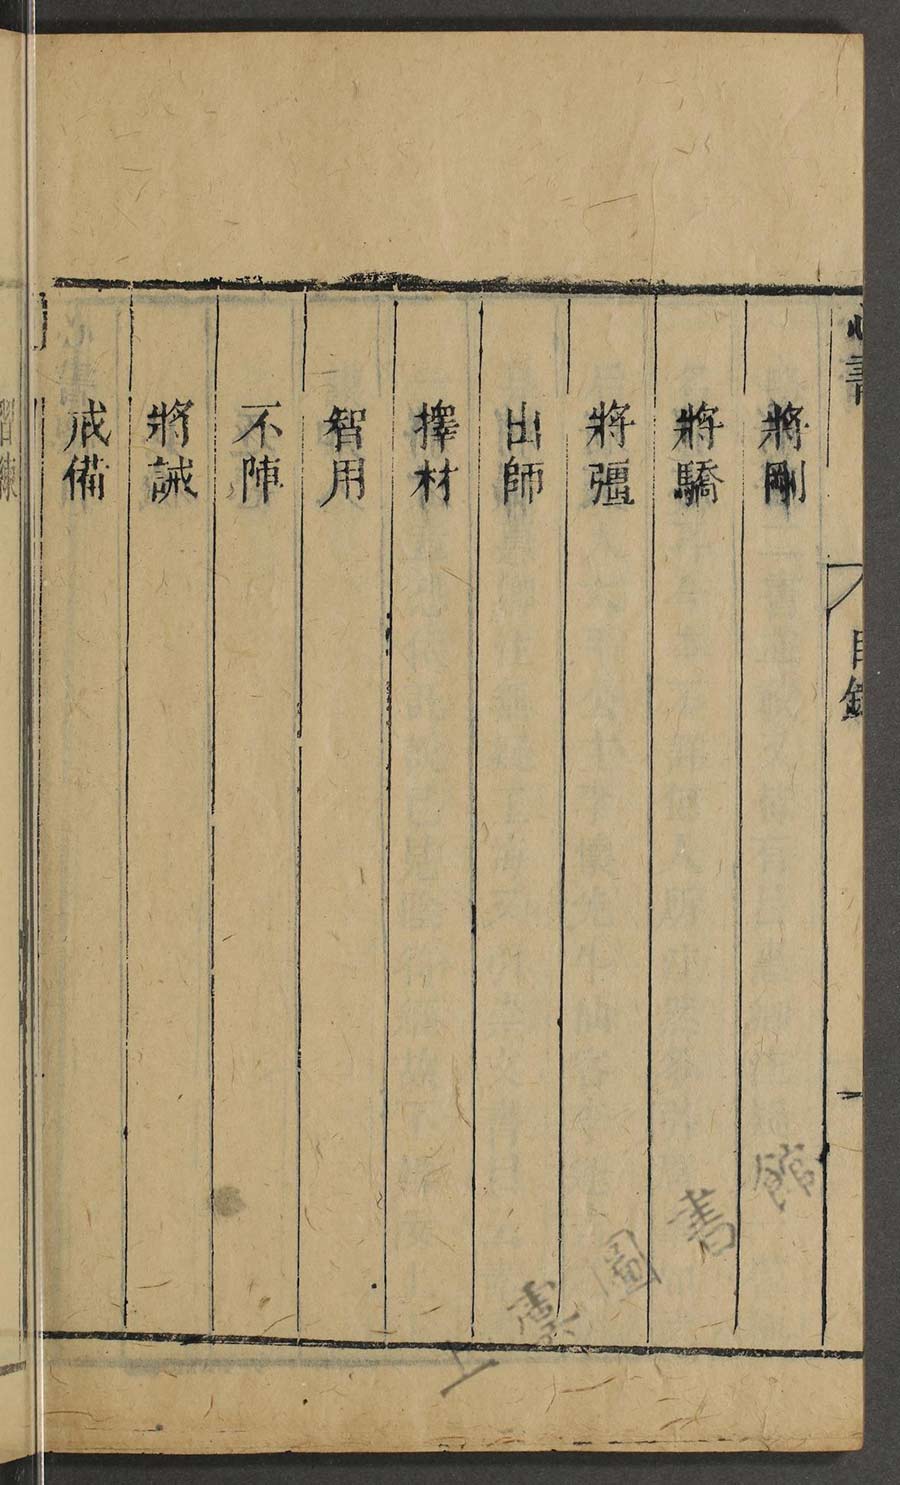 心書
目錄
將剛
將驕
將彊
出師
擇材
智用
不陣
將誡
戒備
習練
上虞圖書館